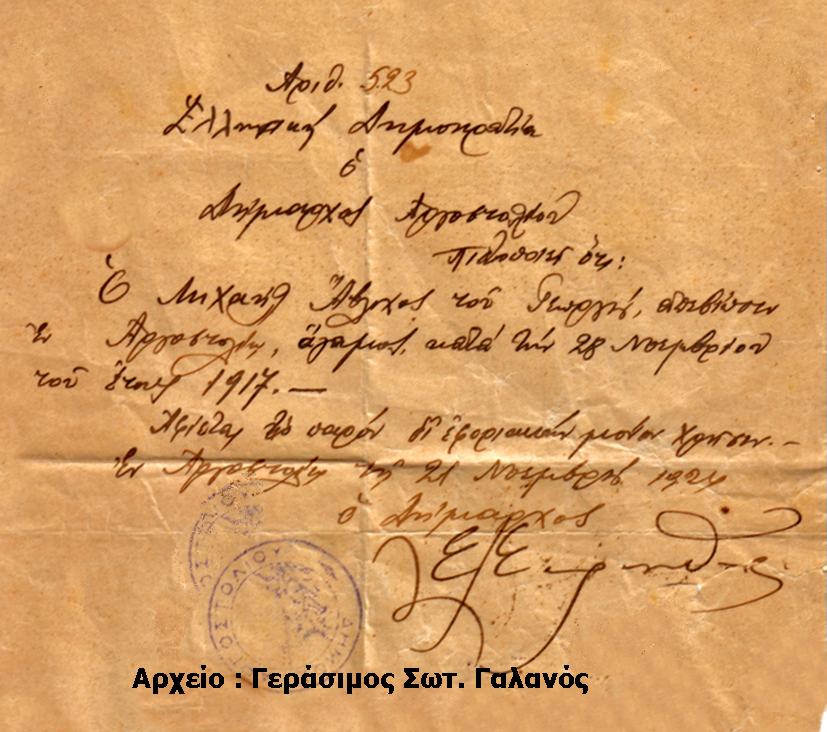 Αριθ. 523
Ἑλληνική Δημοκρατία
ὁ
Δήμαρχος Αργοστολίου
πιστοποιεί ότι:
Ὁ Μιχαήλ τοῦ Γεωργίου, απεβίωσεν
Ἐν Αργοστολίῳ, ἄγαμος, κατά την 28 Νοεμβρίου
τοῦ ἔτους 1917. —
το παρόν δι' εφοριακήν μόνον χρήσιν. —
Ἐν Αργοστολίῳ τῇ 21 Νοεμβρίου 1924
ὁ Δήμαρχος
ΑΡΓΟΣΤΟΛΙΟΥ ΔΗΜ
Αρχείο : Γεράσιμος Σωτ. Γαλανός